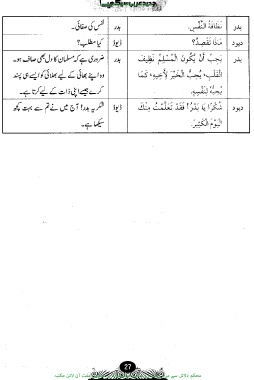 بدر نَظَافَةُ النَّفْسِ. بدر نفس کی صفائی۔
ديود مَاذَا تَقْصِدُ؟ ڈیوڈ کیا مطلب؟
بدر يَجِبُ أَنْ يَكُونَ الْمُسْلِمُ نَظِيفَ بدر ضروری ہے کہ مسلمان کا دل بھی صاف ہو۔
الْقَلْبِ، يُحِبُّ الْخَيْرَ لِأَخِيهِ، كَمَا وہ اپنے بھائی کے لیے بھلائی کو ایسے ہی پسند
يُحِبُّهُ لِنَفْسِهِ. کرے جیسے اپنی ذات کے لیے کرتا ہے۔
ديود شُكْرًا يَا بَدْرُ! فَقَدْ تَعَلَّمْتُ مِنْكَ ڈیوڈ شکریہ بدر! آج میں نے تم سے بہت کچھ
الْيَوْمَ الْكَثِيرَ. سیکھا ہے۔
27
محکم دلائل سے مزین متنوع و منفرد کتب پر مشتمل مفت آن لائن مکتبہ